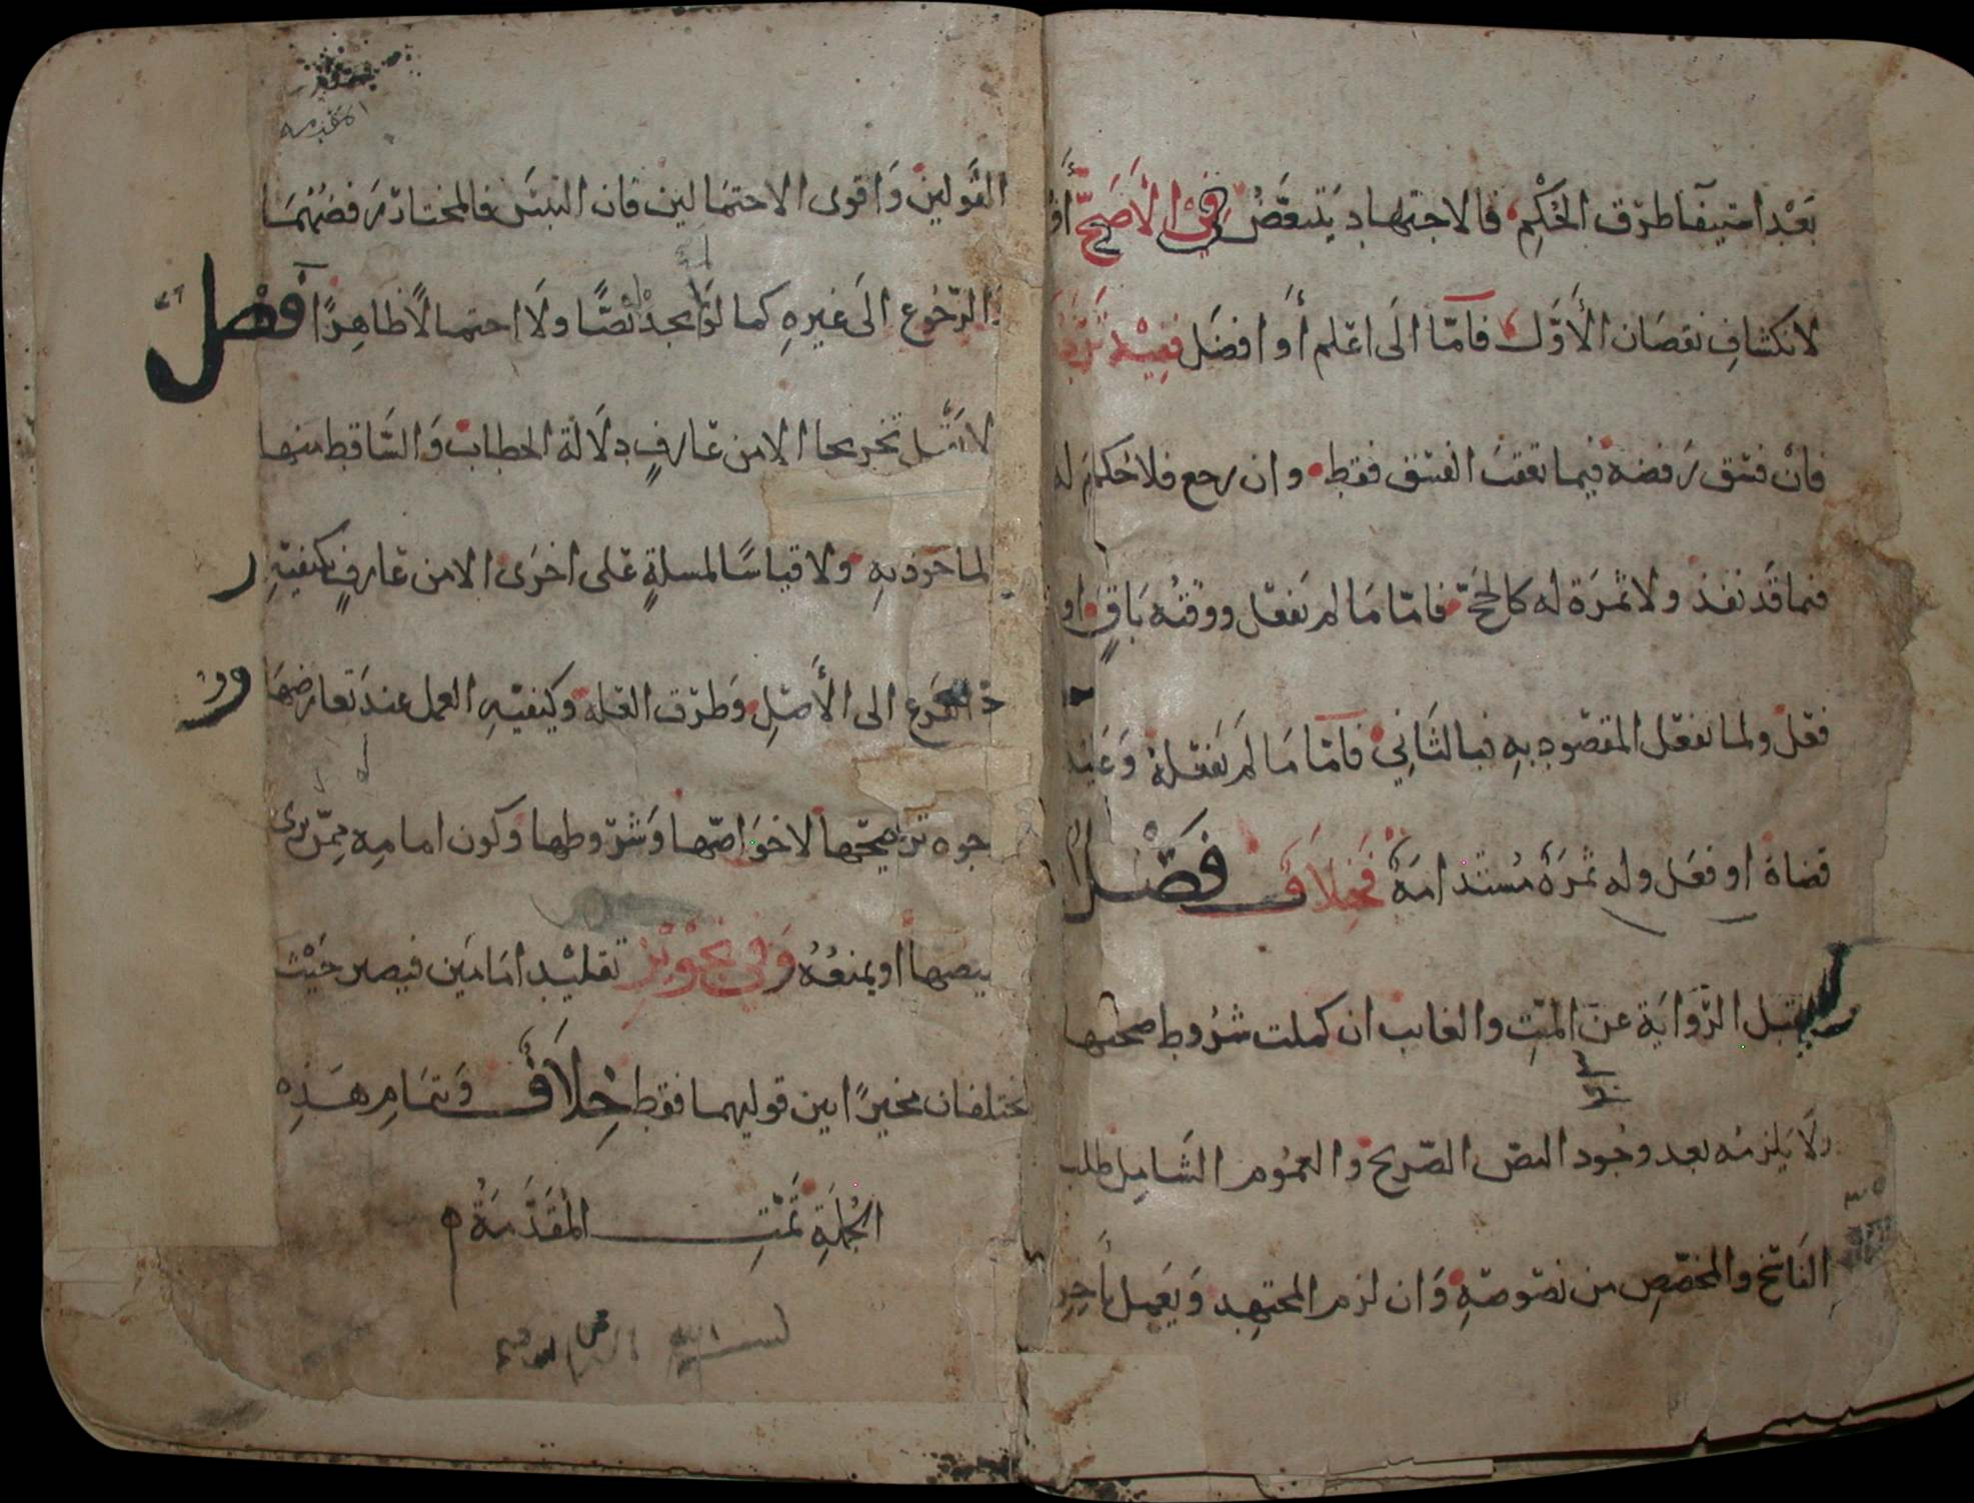 بَعْد استيفا طرق الحُكْمِ فالاجتهاد يَتبعَّضُ فِي الأَصَحِّ أَو
لانكشافِ نقصَان الأَوَّل فامّا الَى اعلم أَو افضَل ففِيْهِ تَرَدُّد
فانْ فسَق رَفضه فيما تعقبَ الفسَق فقط وان رجع فلا حُكمَ له
فيما قَد نفذ ولا ثمَرَة له كالحَجّ فامّا مَا لم يَفعَل ووقتُه بَاقٍ او
فعَل ولما يفعَل المقصُود بهِ فبالثَانِي فامّا مَا لَم يَفعَلهُ وَعَليْه
قضاة او فعَل وله ثمَرَةٌ مُستَدامَةٌ فَخِلاَف فَصْلٌ
يقبَل الرِّوَايَة عن الميِّتِ والغايب ان كملت شرُوط صحتها
ولَا يَلزمُه بعد وجُود النصّ الصّريح والعمُوم الشَامِل طلب
النَاسِخ والمخصّصِ من نصُوصِهِ وَان لزم المجتهِد وَيَعمل بأَخِرِ
المقدمه
القَولين وَاقوى الاحتمَالين فان التبَس فالمختار رَفضهُمَا
والرّجُوع الَى غيرهِ كما لَو لم يجدْ نَصًّا ولَا احتمالًا ظاهِرًا فَصْلٌ
لا يقبَل تخريجا الا من عَارفٍ دِلَالة الخطاب وَالسَاقط منها
لماخوذ بهِ ولا قياسًا لمسلةٍ عَلى اخرَى الا من عَارفٍ بكيفيّةِ ر
د الفَرع الى الأَصْلِ وَطرُق العلة وكيفيّهِ العمل عندَ تعارضهَا وو
جوه ترجيحها لا خوَاصّها وَشرُوطها وكون امامه مِمّن يرى
تخصيصها او يمنعُهُ وَفِي تجوِيْزِ تقليْد امَامَين فيصير حَيْث
يختلفان مخيرًا بين قوليهما فقط خِلَافٌ وَتمَامِ هَذِه
الجُملَةِ تَمَّتِ المُقَدِّمَةُ